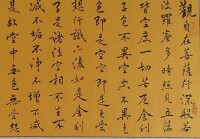 觀自在菩薩行深般若
波羅蜜多時照見五蘊
皆空度一切苦厄舍利
子色不異空空不異色
色即是空空即是色受
想行識亦復如是舍利
子是諸法空相不生不
滅不垢不淨不增不減
是故空中無色無受想